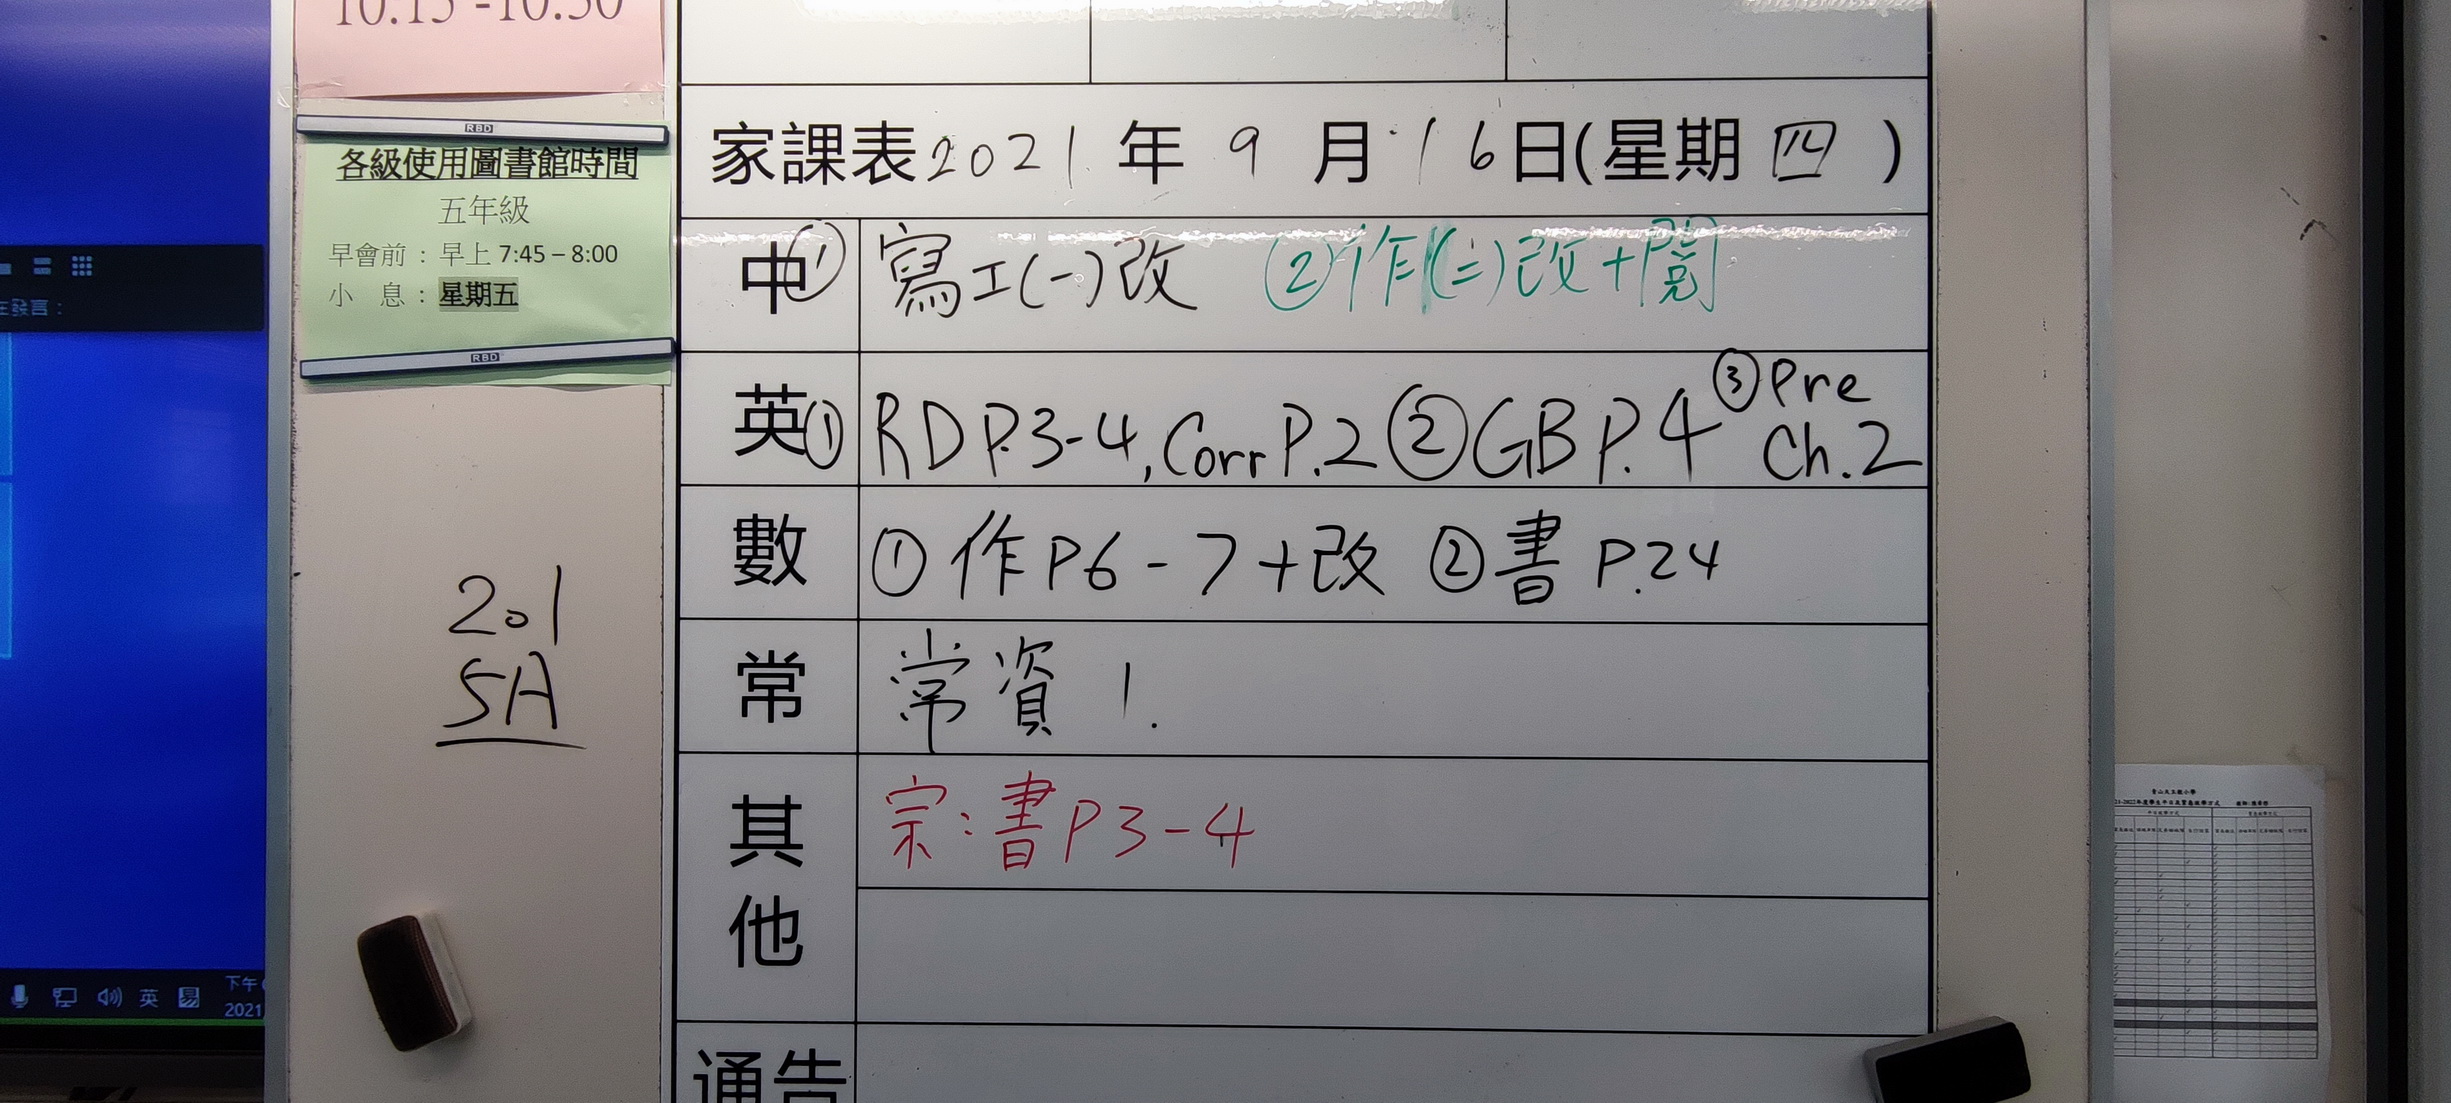 10:15 -10:30
RBD
各級使用圖書館時間
五年級
早會前：早上 7:45 – 8:00
小 息：星期五
RBD
201
5A
家課表2021 年 9 月 16日(星期 四 )
中① 寫工(一)改 ②作(二)改+閱
英① RD P.3-4, Corr P.2 ②GB P.4 ③Pre Ch.2
數 ①作P6-7+改 ②書 P.24
常 常資 1.
其他 宗:書P3-4
通告
在發言：
英
下午
2021